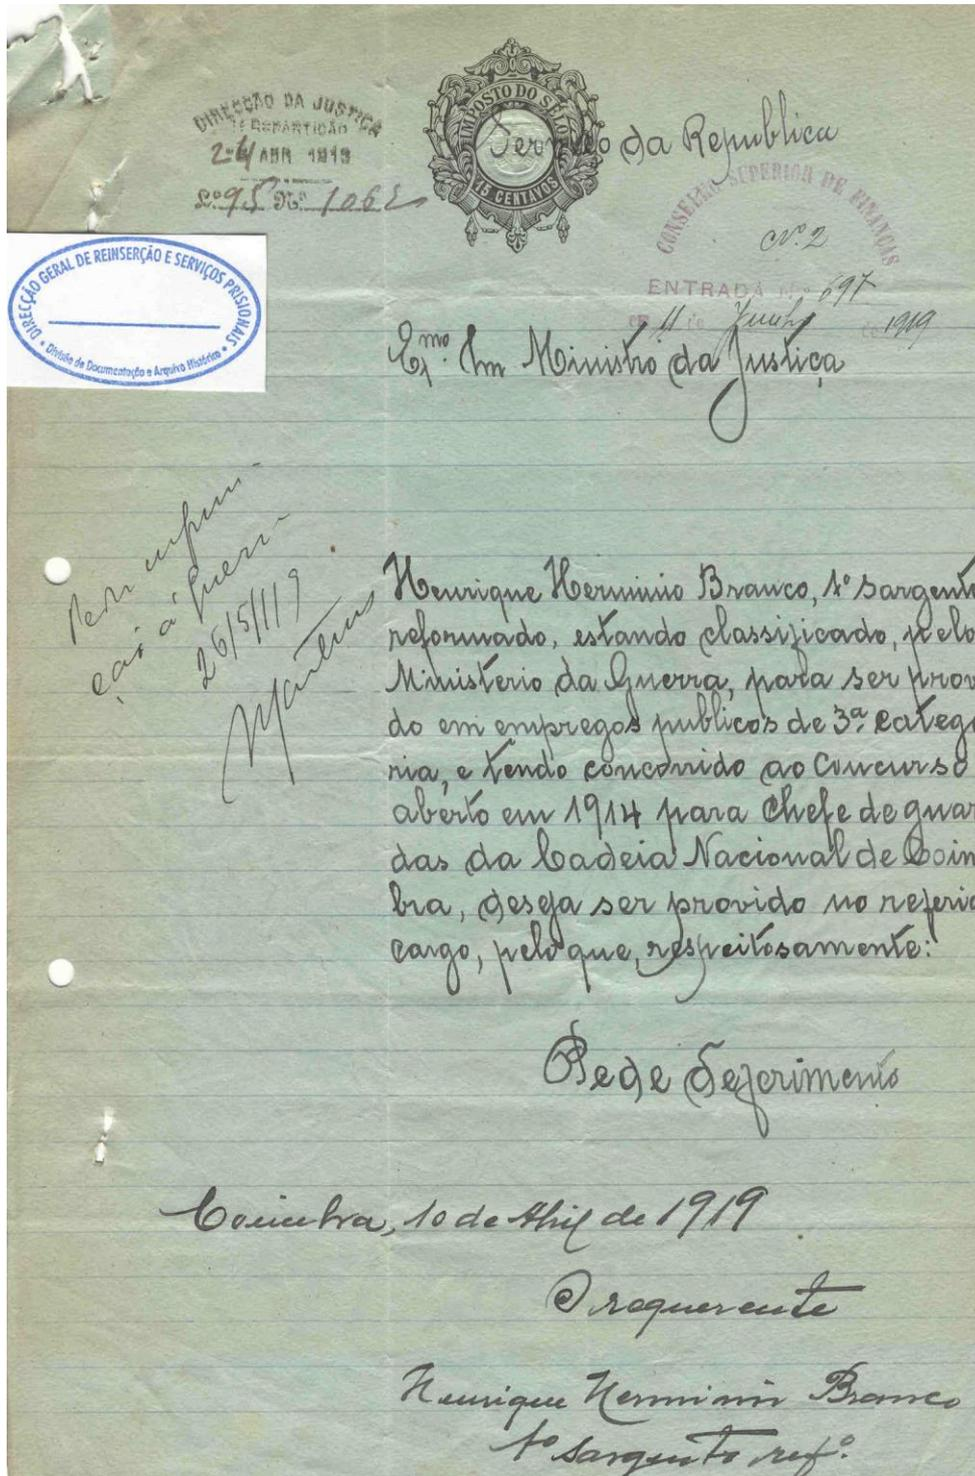 DIRECÇÃO DA JUSTIÇA
1ª REPARTIÇÃO
24 ABR 1919
L.º 95 N.º 1062
IMPOSTO DO SELO
15 CENTAVOS
Serviço da Republica
CONSELHO SUPERIOR DE FINANÇAS
Nº. 2
ENTRADA N.º 697
em 11 de Junho de 1919
DIRECÇÃO GERAL DE REINSERÇÃO E SERVIÇOS PRISIONAIS
Divisão de Documentação e Arquivo Histórico
Exmo. Snr Ministro da Justiça
á Guerra
26/5/919
Martins
Henrique Herminio Branco, 1º sargento
reformado, estando classificado, pelo
Ministério da Guerra, para ser provi
do em empregos publicos de 3ª catego
ria, e tendo concorrido ao concurso
aberto em 1914 para Chefe de guar
das da Cadeia Nacional de Coim
bra, deseja ser provido no referid
cargo, pelo que, respeitosamente:
Pede deferimento
Coimbra, 10 de Abril de 1919
O requerente
Henrique Herminio Branco
1º sargento refº.